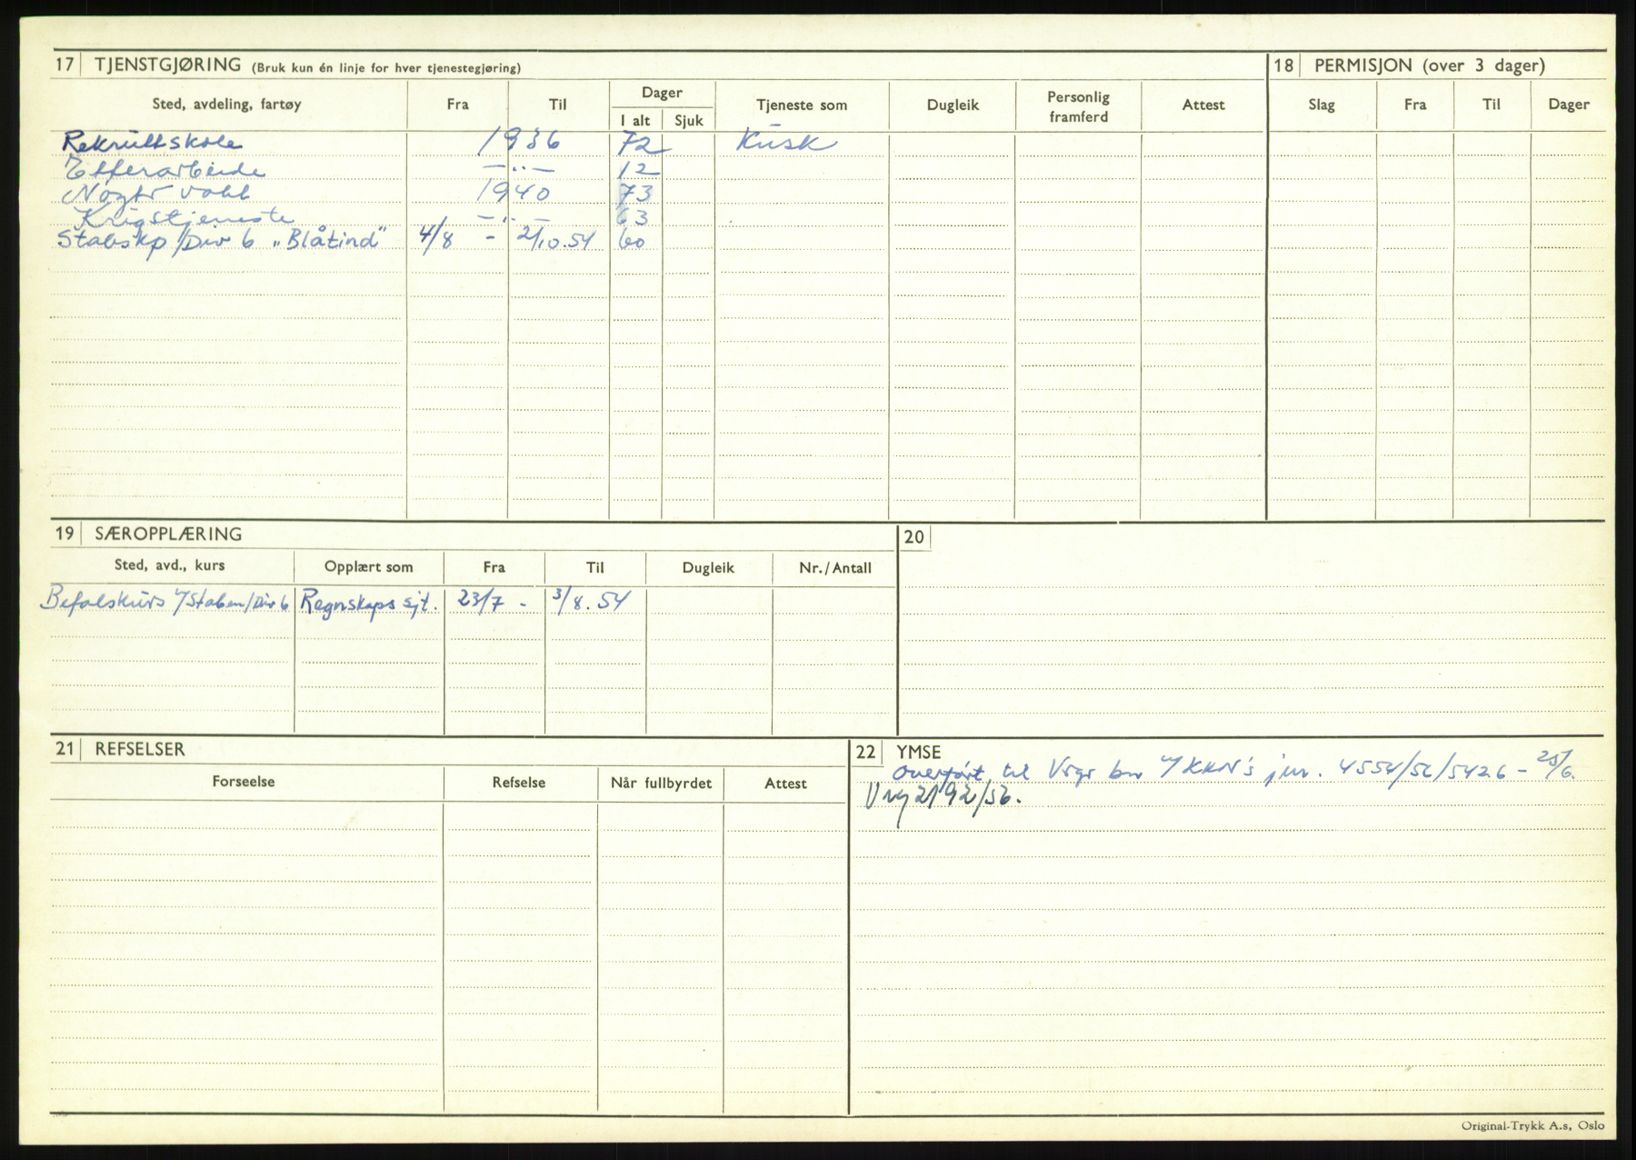 17 TJENSTGJØRING (Bruk kun én linje for hver tjenestegjøring)
Sted, avdeling, fartøy Fra Til Dager Tjeneste som Dugleik Personlig framferd Attest
I alt Sjuk
Rekruttskole 1936 72 Kusk
Etterarbeide —"— 12
Nøytr vakt 1940 73
Krigstjeneste —"— 63
Stabskp/Div 6 „Blåtind" 4/8 - 2/10.54 60
18 PERMISJON (over 3 dager)
Slag Fra Til Dager
19 SÆROPPLÆRING
Sted, avd., kurs Opplært som Fra Til Dugleik Nr./Antall
Befalskurs v/Staben/Div 6 Regnskaps sjt. 23/7 - 3/8.54
20
21 REFSELSER
Forseelse Refselse Når fullbyrdet Attest
22 YMSE
Overført til 4554/56/5426 -
2192/56.
Original-Trykk A.s, Oslo